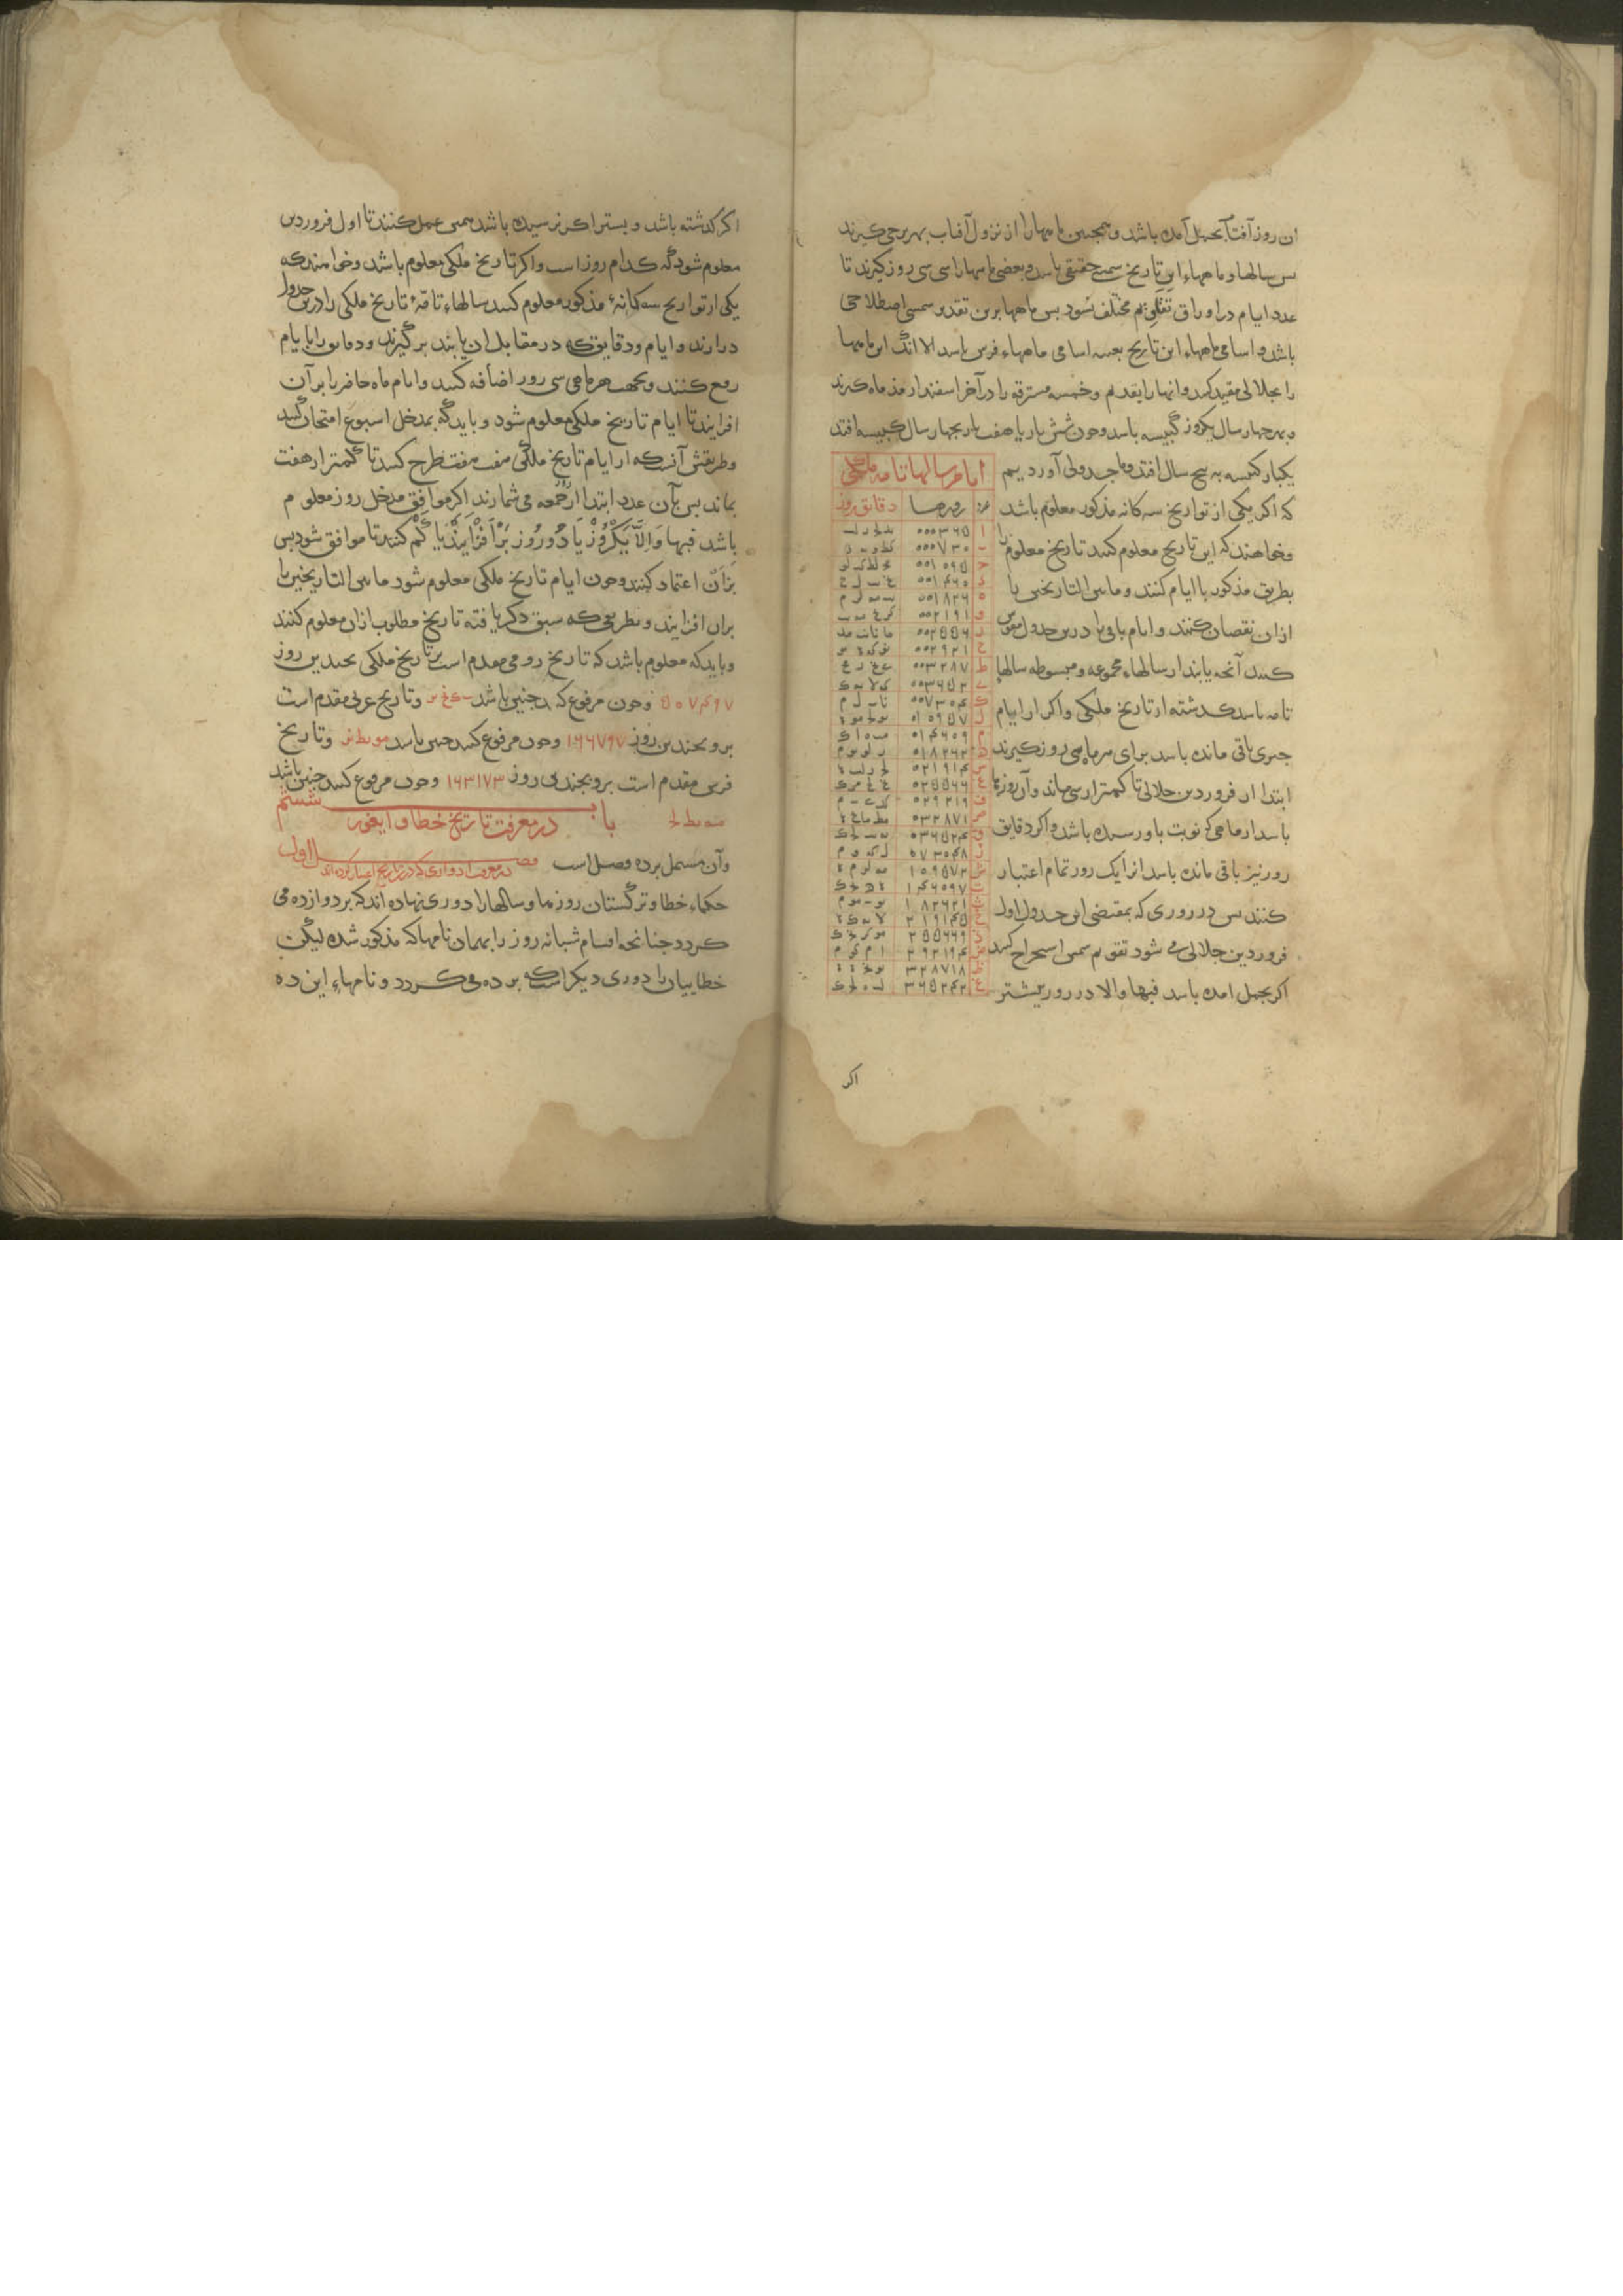 ان روز آفتاب بحمل آمده باشد و همچنین ماهها را از نزول آفتاب بهر برجی کیرند
بس سالها و ماههاء این تاریخ شمسی حقیقی باشد و بعضی ماهها را سی سی روز کیرند تا
عدد ایام در اوراق تقاویم مختلف نشود بس ماهها برین تقدیر شمسی اصطلاحی
باشد و اسامی ماههاء این تاریخ بعینه اسامی ماههاء فرس باشد الا انک این ماهها
را بجلالی مقید کنند و انها را بقدیم و خمسه مسترقه را در آخر اسفندارمذ ماه کیرند
و بهر جهار سال یکروز کبیسه باشد و جون شش بار یا هفت بار بجهار سال کبیسه افتد
یکبار کبیسه به بنج سال افتد و ما جدولی آوردیم
که اکر یکی از تواریخ سه کانه مذکور معلوم باشد
و خواهند که این تاریخ معلوم کنند تاریخ معلوم را
بطریق مذکور با ایام کنند و مابین التاریخین را
ازان نقصان کنند و ایام باقی را درین جدول مقوس
کنند آنجه یابند از سالهاء مجموعه و مبسوطه سالها
تامه باشد کذشته از تاریخ ملکی و اکر از ایام
جیزی باقی مانده باشد برای هر ماهی سی روز کیرند
ابتدا از فروردین جلالی تا کمتر از سی ماند و آن روزها
باشد از ماهی که نوبت باو رسیده باشد و اکر دقایق
روز نیز باقی مانده باشد انرا یک روز تمام اعتبار
کنند بس در روزی که بمقتضی این جدول اول
فروردین جلالی می شود تقویم شمس استخراج کنند
اکر بحمل امده باشد فبها والا در روز بیشتر
ایام سالها تامه ملکی
عدد روزها دقایق روز
ا ۰۰۰۳۶۵
ب ۰۰۰۷۳۰
ج ۰۰۱۰۹۵
د ۰۰۱۴۶۰
ه ۰۰۱۸۲۶
و ۰۰۲۱۹۱
ز ۰۰۲۵۵۶
ح ۰۰۲۹۲۱
ط ۰۰۳۲۸۷
ی ۰۰۳۶۵۲
ک ۰۰۷۳۰۴
ل ۰۱۰۹۵۷
م ۰۱۴۶۰۹
ن ۰۱۸۲۶۲
س ۰۲۱۹۱۴
ع ۰۲۵۵۶۶
ف ۰۲۹۲۱۹
ص ۰۳۲۸۷۱
ق ۰۳۶۵۲۴
ر ۰۷۳۰۴۸
ش ۱۰۹۵۷۲
ت ۱۴۶۰۹۷
ث ۱۸۲۶۲۱
خ ۲۱۹۱۴۵
ذ ۲۵۵۶۶۹
ض ۲۹۲۱۹۴
ظ ۳۲۸۷۱۸
غ ۳۶۵۲۴۲
اکر
اکر کذشته باشد و بیشتر اکر نرسیده باشد همین عمل کنند تا اول فروردین
معلوم شود که کدام روز است و اکر تاریخ ملکی معلوم باشد و خواهند که
یکی از تواریخ سه کانهٔ مذکور معلوم کنند سالهاء تامهٔ تاریخ ملکی را درین جدول
درارند و ایام و دقایق که در مقابل ان یابند بر کیرند و دقایق را با ایام
رفع کنند و بجهت هر ماهی سی روز اضافه کنند و ایام ماه حاضر را بر آن
افزایند تا ایام تاریخ ملکی معلوم شود و باید که بمدخل اسبوع امتحان کنند
و طریقش آنست که از ایام تاریخ ملکی هفت هفت طرح کنند تا کمتر از هفت
بماند بس بآن عدد ابتدا از جمعه می شمارند اکر موافق مدخل روز معلوم
باشد فبها وَاِلّا یَکْرُوزْ یَا دُورُوز بَرْ اَفْزَایَنْدْ یا کَمْ کنند تا موافق شود بس
بران اعتماد کنند و جون ایام تاریخ ملکی معلوم شود مابین التاریخین را
بران افزایند و بطریقی که سبق ذکر یافته تاریخ مطلوب ازان معلوم کنند
و باید که معلوم باشد که تاریخ رومی مقدم است بر تاریخ ملکی بجندین روز
۵۰۷۴۹۷ و جون مرفوع کنند جنین باشد و تاریخ عربی مقدم است
برو بجندین روز ۱۶۶۷۹۷ و جون مرفوع کنند جنین باشد مو یط نز و تاریخ
فرس مقدم است برو بجندین روز ۱۶۳۱۷۳ و جون مرفوع کنند جنین باشد
مه یط لج باب ششم
در معرفت تاریخ خطا و ایغور
وآن مشتمل برده فصل است فصل اول در معرفت ادواری که درین تاریخ اعتبار کرده اند
حکماء خطا و ترکستان روزها و سالها را دوری نهاده اند که بر دوازده می
کردد جنانجه اقسام شبانه روز را بهمان نامها که مذکور شده لیکن
خطاییان را دوری دیکر است که بر ده می کردد و نامهاء این ده